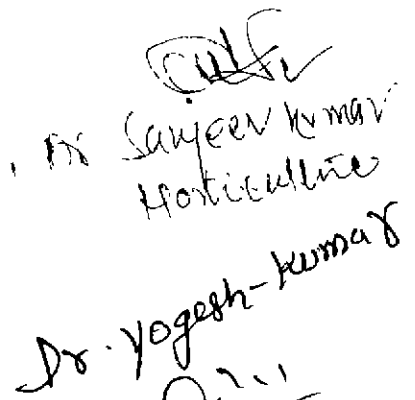 Dr Sanjeev Kumar
Horticulture
Dr. Yogesh-Kumar